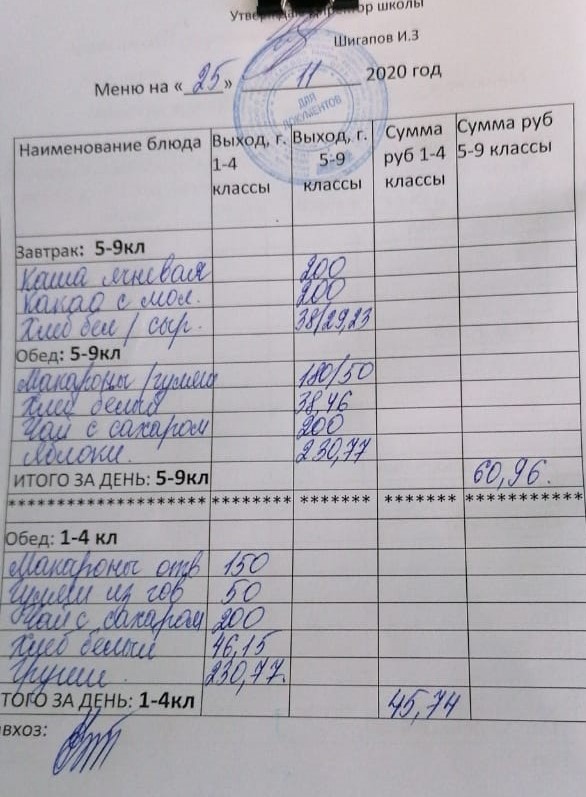 Утверждаю директор школы
Шигапов И.З
Меню на «25» 11 2020 год
ДЛЯ ДОКУМЕНТОВ
Наименование блюда Выход, г. 1-4 классы Выход, г. 5-9 классы Сумма руб 1-4 классы Сумма руб 5-9 классы
Завтрак: 5-9кл
Каша ячневая 200
Какао с мол. 200
Хлеб бел/сыр. 38/29,23
Обед: 5-9кл
Макароны/гуляш 180/50
Хлеб белый 38,46
Чай с сахаром 200
Яблоки. 230,77
ИТОГО ЗА ДЕНЬ: 5-9кл 60,96.
Обед: 1-4 кл
Макароны отв 150
Гуляш из гов 50
Чай с сахаром 200
Хлеб белый 46,15
Груши. 230,77.
ТОГО ЗА ДЕНЬ: 1-4кл 45,74
авхоз: